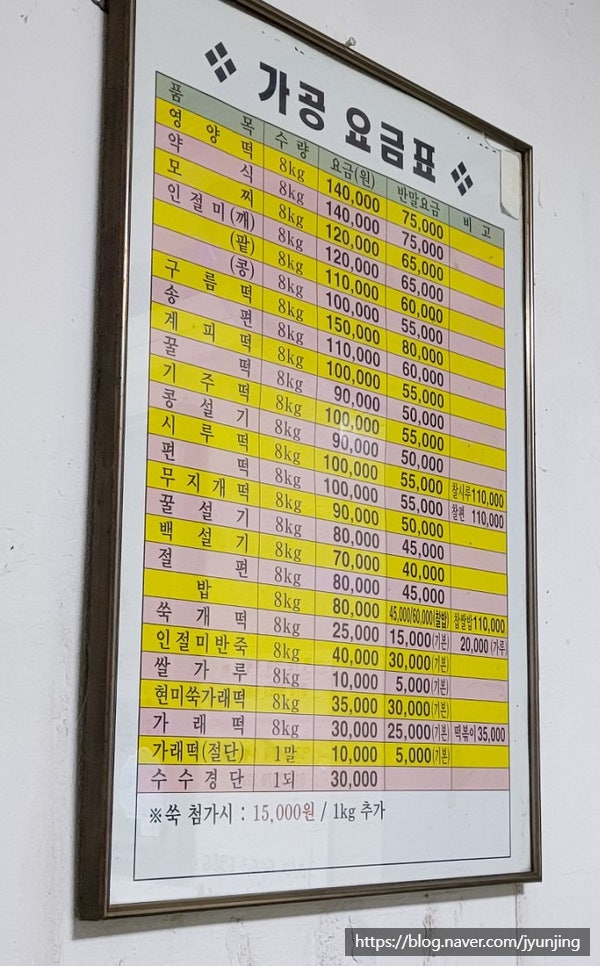 ❖ 가공 요금표 ❖
품목 수량 요금(원) 반말요금 비고
영양떡 8kg 140,000 75,000
약식 8kg 140,000 75,000
모찌 8kg 120,000 65,000
인절미(깨) 8kg 120,000 65,000
(팥) 8kg 110,000 60,000
(콩) 8kg 100,000 55,000
구름떡 8kg 150,000 80,000
송편 8kg 110,000 60,000
계피떡 8kg 100,000 55,000
꿀떡 8kg 90,000 50,000
기주떡 8kg 100,000 55,000
콩설기 8kg 90,000 50,000
시루떡 8kg 100,000 55,000 찰시루110,000
편떡 8kg 100,000 55,000 찰편 110,000
무지개떡 8kg 90,000 50,000
꿀설기 8kg 80,000 45,000
백설기 8kg 70,000 40,000
절편 8kg 80,000 45,000
밥 8kg 80,000 45,000/60,000(찰밥) 찹쌀밥110,000
쑥개떡 8kg 25,000 15,000(기본) 20,000 (가루)
인절미반죽 8kg 40,000 30,000(기본)
쌀가루 8kg 10,000 5,000(기본)
현미쑥가래떡 8kg 35,000 30,000(기본)
가래떡 8kg 30,000 25,000(기본) 떡볶이 35,000
가래떡(절단) 1말 10,000 5,000(기본)
수수경단 1되 30,000
※쑥 첨가시 : 15,000원 / 1kg 추가
https://blog.naver.com/jyunjing